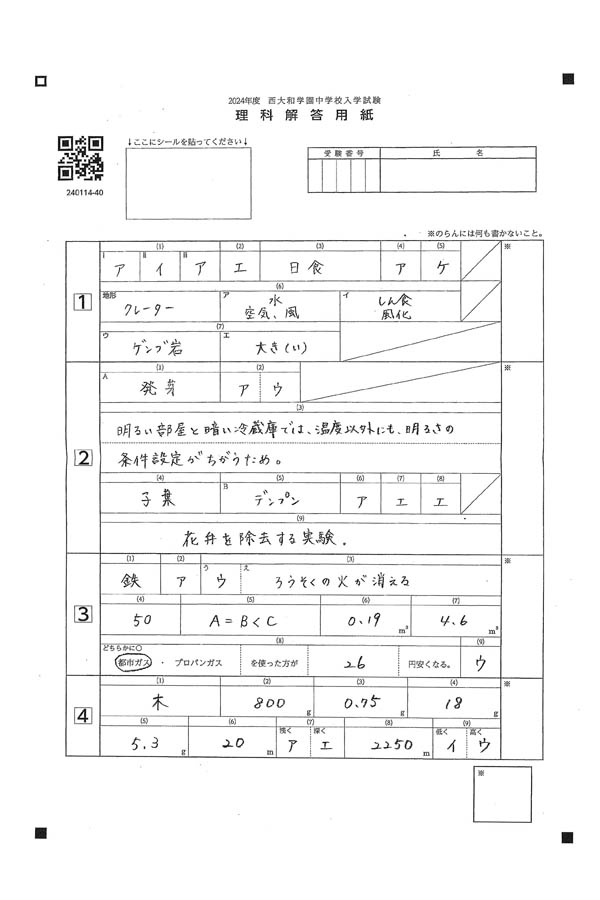 2024年度 西大和学園中学校入学試験
理科解答用紙
240114-40
↓ここにシールを貼ってください↓
受験番号 氏 名
※のらんには何も書かないこと。
1
(1) (2) (3) (4) (5) ※
i ア ii イ iii ア エ 日食 ア ケ
(6)
地形 クレーター ア 水 空気、風 イ しん食 風化
(7)
ウ ゲンブ岩 エ 大き(い)
2
(1) (2) ※
A 発芽 ア ウ
(3)
明るい部屋と暗い冷蔵庫では、温度以外にも、明るさの
条件設定がちがうため。
(4) (5) (6) (7) (8)
子葉 B デンプン ア エ エ
(9)
花弁を除去する実験。
3
(1) (2) (3) ※
鉄 ア う ウ え ろうそくの火が消える
(4) (5) (6) (7)
50 A=B<C 0.19 m³ 4.6 m³
(8) (9)
どちらかに○
都市ガス ・ プロパンガス を使った方が 26 円安くなる。 ウ
4
(1) (2) (3) (4) ※
木 800 g 0.75 g 18 g
(5) (6) (7) (8) (9)
5.3 g 20 m 浅く ア 深く エ 2250 m 低く イ 高く ウ
※